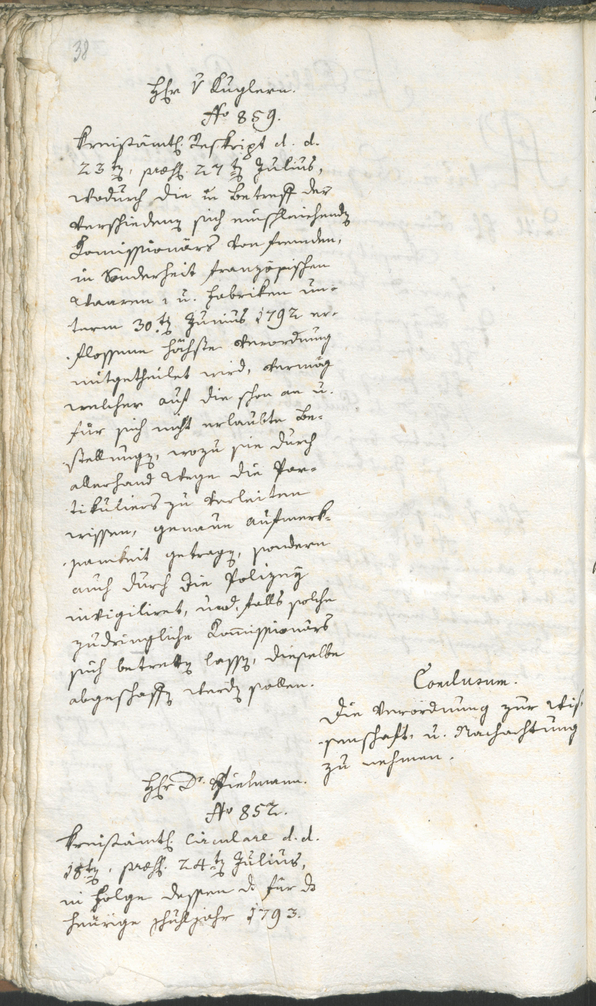 38
Hhr v Kuglern.
No 859.
Kreisämtl. Reskript d. d.
23tn, præs. 27tn Julius,
wodurch die in Betreff der
verschiedenen sich einschleichenden
Komissionärs von fremden,
in Sonderheit französischen
Waaren u. Fabriken un-
term 30.tn Junius 1792 er-
flossene höchste Verordnung
mitgetheilet wird, vermög
welcher auf die schon an u.
für sich nicht erlaubte Be-
stellungen, wozu sie durch
allerhand Wege die Par-
tikuliers zu verleiten
wissen, genaue Aufmerk-
samkeit getragen, sondern
auch durch die Polizey
invigiliret, und, falls solche
zudringliche Kommissionärs
sich betretten lassen, dieselbe
abgeschafft werden sollen.
Conclusum.
Die Verordnung zur Wis-
senschaft u. Nachachtung
zu nehmen.
Hhr Dr.
No 852.
Kreisämtl. Circulare d. d.
18tn, præs. 24tn Julius,
in Folge dessen für
heurige Schuljahr 1793.